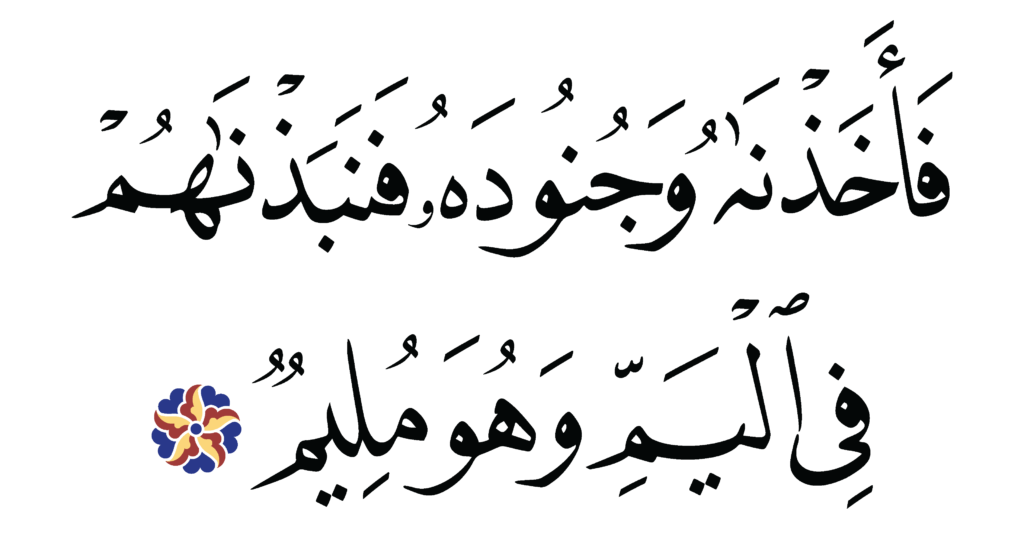 فَأَخَذْنَٰهُ وَجُنُودَهُۥ فَنَبَذْنَٰهُمْ
فِى ٱلْيَمِّ وَهُوَ مُلِيمٌ